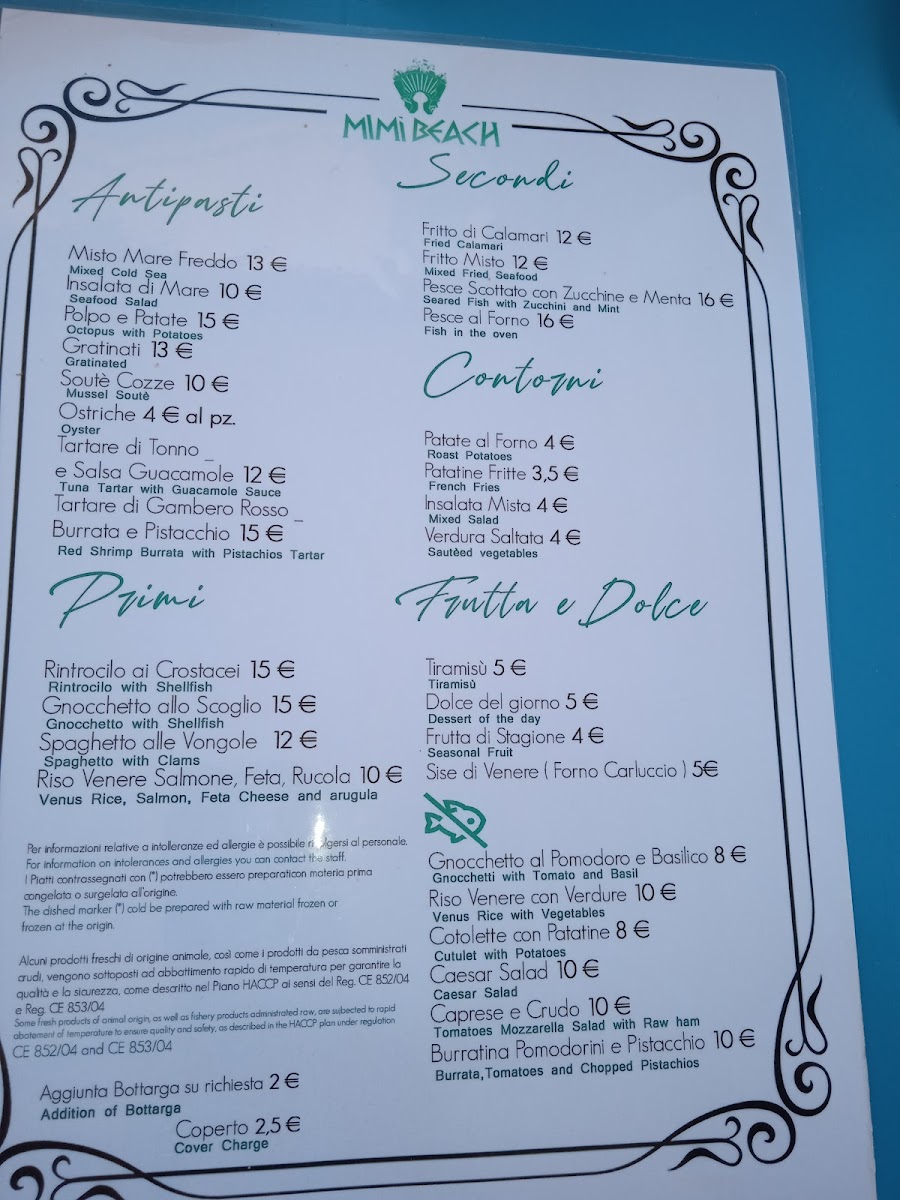 MIMÌ BEACH
Antipasti
Misto Mare Freddo 13 €
Mixed Cold Sea
Insalata di Mare 10 €
Seafood Salad
Polpo e Patate 15 €
Octopus with Potatoes
Gratinati 13 €
Gratinated
Soutè Cozze 10 €
Mussel Soutè
Ostriche 4 € al pz.
Oyster
Tartare di Tonno _
e Salsa Guacamole 12 €
Tuna Tartar with Guacamole Sauce
Tartare di Gambero Rosso _
Burrata e Pistacchio 15 €
Red Shrimp Burrata with Pistachios Tartar
Primi
Rintrocilo ai Crostacei 15 €
Rintrocilo with Shellfish
Gnocchetto allo Scoglio 15 €
Gnocchetto with Shellfish
Spaghetto alle Vongole 12 €
Spaghetto with Clams
Riso Venere Salmone, Feta, Rucola 10 €
Venus Rice, Salmon, Feta Cheese and arugula
Per informazioni relative a intolleranze ed allergie è possibile rivolgersi al personale.
For information on intolerances and allergies you can contact the staff.
I Piatti contrassegnati con (*) potrebbero essero preparaticon materia prima
congelata o surgelata all'origine.
The dished marker (*) cold be prepared with raw material frozen or
frozen at the origin.
Alcuni prodotti freschi di origine animale, così come i prodotti da pesca somministrati
crudi, vengono sottoposti ad abbattimento rapido di temperatura per garantire la
qualità e la sicurezza, come descritto nel Piano HACCP ai sensi del Reg. CE 852/04
e Reg. CE 853/04
Some fresh products of animal origin, as well as fishery products administrated raw, are subjected to rapid
abatement of temperature to ensure quality and safety, as described in the HACCP plan under regulation
CE 852/04 and CE 853/04
Aggiunta Bottarga su richiesta 2 €
Addition of Bottarga
Coperto 2,5 €
Cover Charge
Secondi
Fritto di Calamari 12 €
Fried Calamari
Fritto Misto 12 €
Mixed Fried Seafood
Pesce Scottato con Zucchine e Menta 16 €
Seared Fish with Zucchini and Mint
Pesce al Forno 16 €
Fish in the oven
Contorni
Patate al Forno 4 €
Roast Potatoes
Patatine Fritte 3,5 €
French Fries
Insalata Mista 4 €
Mixed Salad
Verdura Saltata 4 €
Sautèed vegetables
Frutta e Dolce
Tiramisù 5 €
Tiramisù
Dolce del giorno 5 €
Dessert of the day
Frutta di Stagione 4 €
Seasonal Fruit
Sise di Venere ( Forno Carluccio ) 5€
Gnocchetto al Pomodoro e Basilico 8 €
Gnocchetti with Tomato and Basil
Riso Venere con Verdure 10 €
Venus Rice with Vegetables
Cotolette con Patatine 8 €
Cutulet with Potatoes
Caesar Salad 10 €
Caesar Salad
Caprese e Crudo 10 €
Tomatoes Mozzarella Salad with Raw ham
Burratina Pomodorini e Pistacchio 10 €
Burrata,Tomatoes and Chopped Pistachios